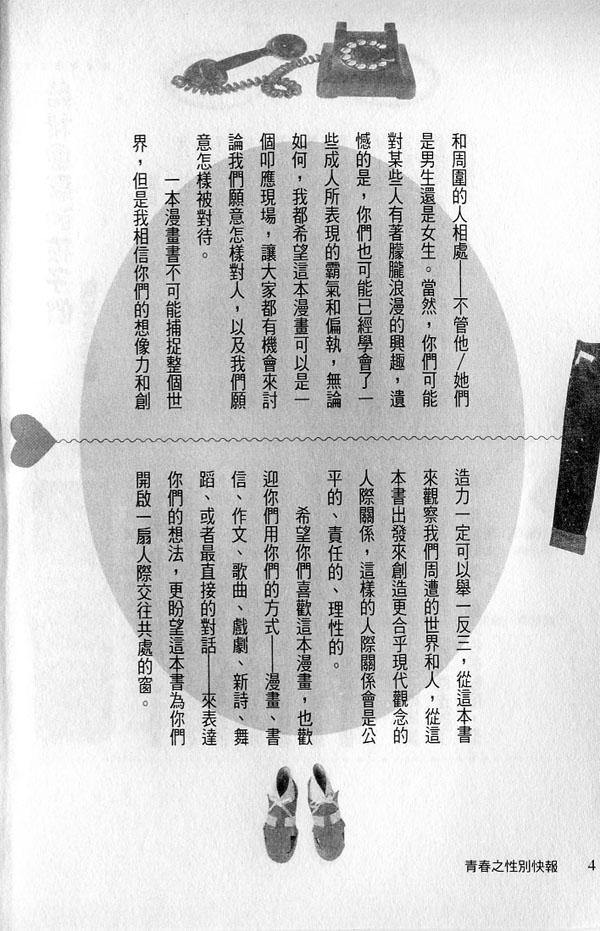 和周圍的人相處——不管他/她們
是男生還是女生。當然，你們可能
對某些人有著朦朧浪漫的興趣，遺
憾的是，你們也可能已經學會了一
些成人所表現的霸氣和偏執，無論
如何，我都希望這本漫畫可以是一
個叩應現場，讓大家都有機會來討
論我們願意怎樣對人，以及我們願
意怎樣被對待。
一本漫畫書不可能捕捉整個世
界，但是我相信你們的想像力和創
造力一定可以舉一反三，從這本書
來觀察我們周遭的世界和人，從這
本書出發來創造更合乎現代觀念的
人際關係，這樣的人際關係會是公
平的、責任的、理性的。
希望你們喜歡這本漫畫，也歡
迎你們用你們的方式——漫畫、書
信、作文、歌曲、戲劇、新詩、舞
蹈、或者最直接的對話——來表達
你們的想法，更盼望這本書為你們
開啟一扇人際交往共處的窗。
青春之性別快報 4